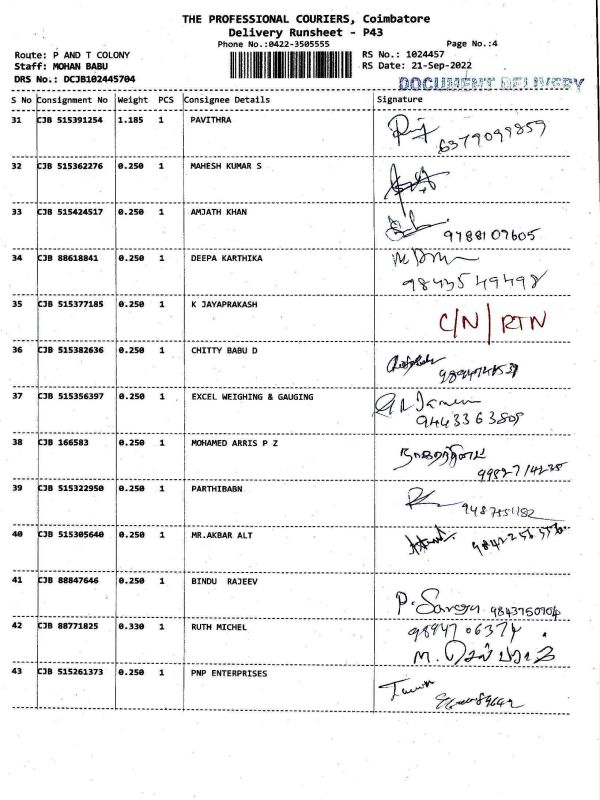 THE PROFESSIONAL COURIERS, Coimbatore
Delivery Runsheet - P43
Phone No.:0422-3505555 Page No.:4
Route: P AND T COLONY RS No.: 1024457
Staff: MOHAN BABU RS Date: 21-Sep-2022
DRS No.: DCJB102445704 DOCUMENT DELIVERY
S No Consignment No Weight PCS Consignee Details Signature
31 CJB 515391254 1.185 1 PAVITHRA
6379099859
32 CJB 515362276 0.250 1 MAHESH KUMAR S
33 CJB 515424517 0.250 1 AMJATH KHAN
9788107605
34 CJB 88618841 0.250 1 DEEPA KARTHIKA
9843549498
35 CJB 515377185 0.250 1 K JAYAPRAKASH
C/N/RTN
36 CJB 515382636 0.250 1 CHITTY BABU D
37 CJB 515356397 0.250 1 EXCEL WEIGHING & GAUGING
9443363809
38 CJB 166583 0.250 1 MOHAMED ARRIS P Z
39 CJB 515322950 0.250 1 PARTHIBABN
40 CJB 515305640 0.250 1 MR.AKBAR ALT
41 CJB 88847646 0.250 1 BINDU RAJEEV
9843750704
42 CJB 88771825 0.330 1 RUTH MICHEL
9894706374
43 CJB 515261373 0.250 1 PNP ENTERPRISES